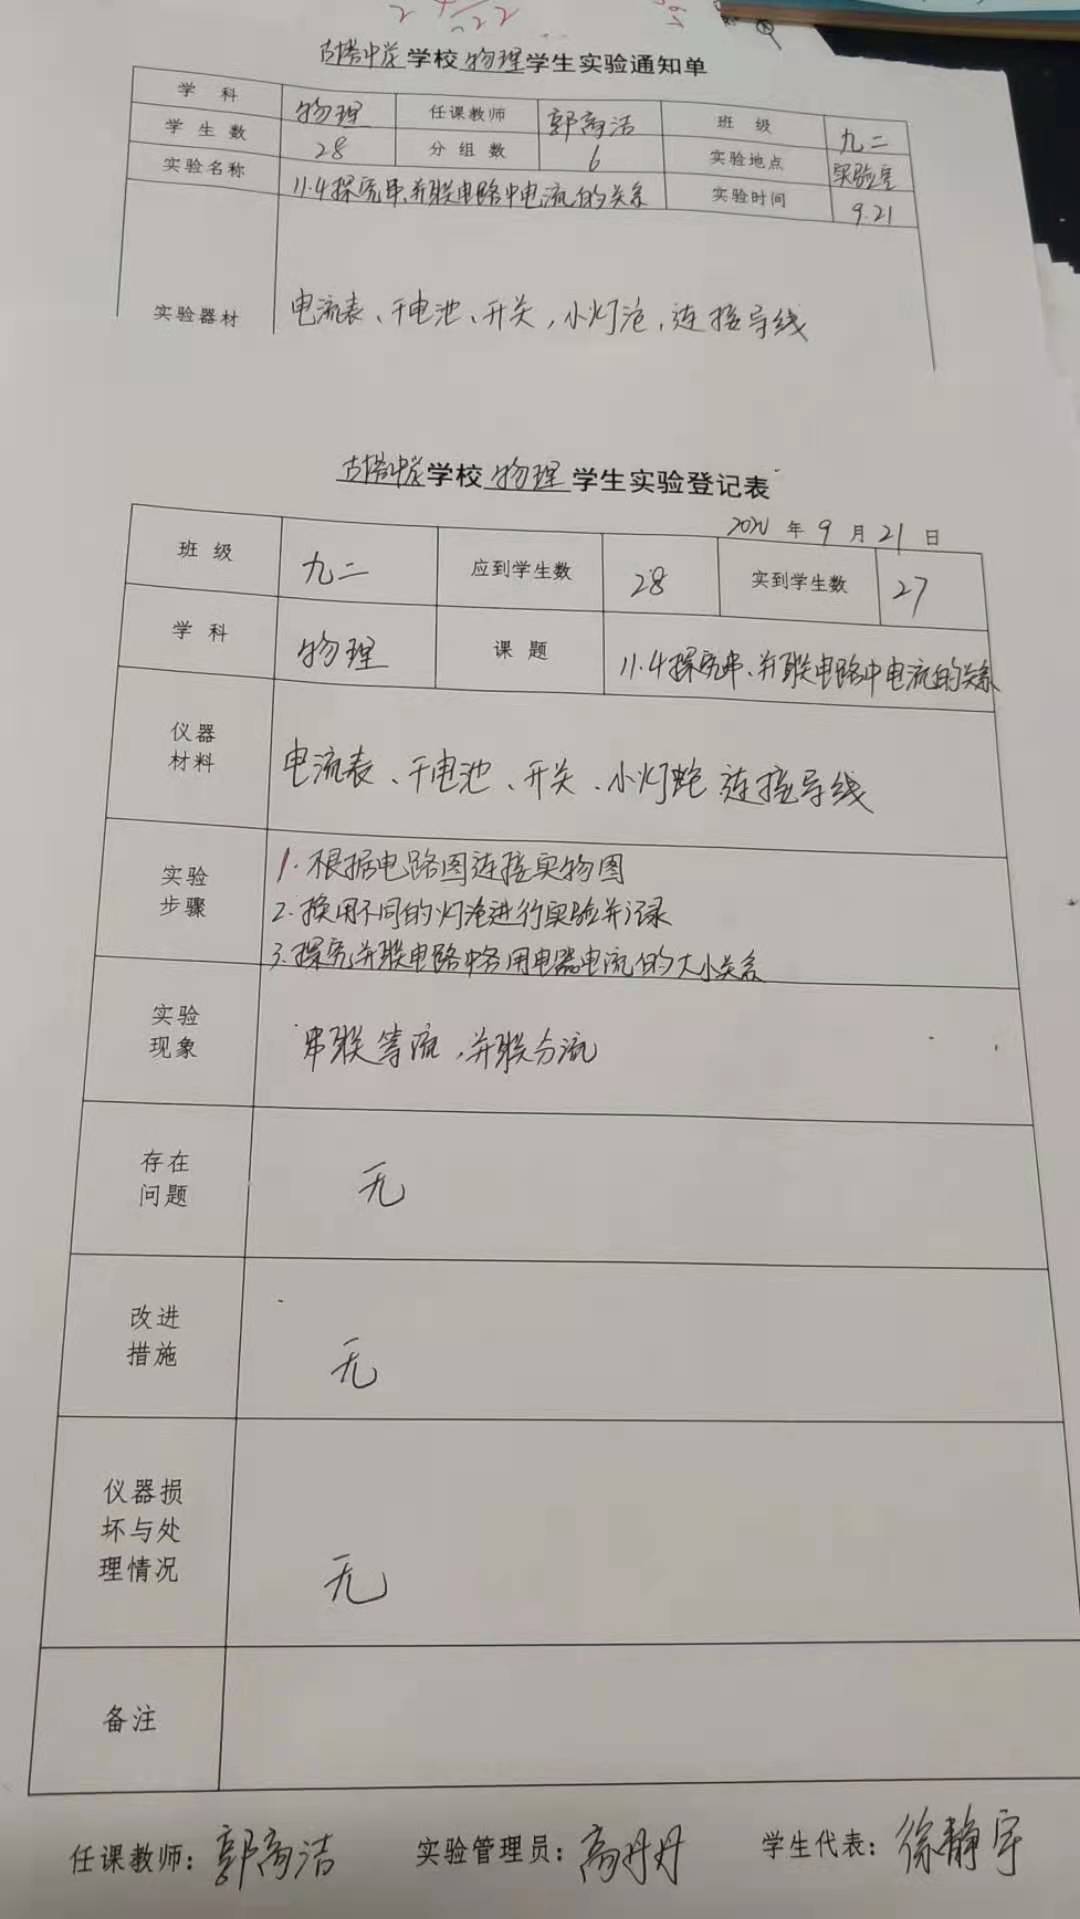 古塔中学学校物理学生实验通知单
学 科 物理 任课教师 郭商洁 班 级 九二
学 生 数 28 分 组 数 6 实验地点 实验室
实验名称 11.4探究串、并联电路中电流的关系 实验时间 9.21
实验器材 电流表、干电池、开关,小灯泡,连接导线
古塔中学学校物理学生实验登记表
年 9 月 21 日
班 级 九二 应到学生数 28 实到学生数 27
学 科 物理 课 题 11.4探究串、并联电路中电流的关系
仪器
材料
电流表、干电池、开关、小灯 连接导线
实验
步骤
1.根据电路图连接实物图
2.换用不同的灯泡进行实验并记录
3.探究并联电路中各用电器电流的大小关系
实验
现象
串联等流,并联分流
存在
问题
无
改进
措施
无
仪器损
坏与处
理情况
无
备注
任课教师:郭商洁 实验管理员:高丹丹 学生代表:徐静宇